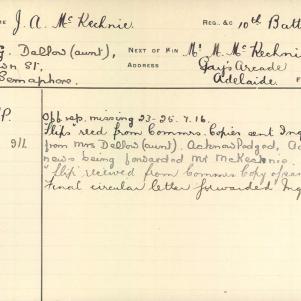 ME J. A. McKechnie. REG. &C 10th Batt
G. Dallow (aunt), NEXT OF KIN Mr M. McKechni
wn St. ADDRESS Gay's Arcade
Semaphore. Adelaide. F
P. Off rep. missing 23-25.7.16.
"Slips" recd from Commrs. Copies sent Inq
9/11 from Mrs Dallow (aunt). Acknowledged, Ad
news being forwarded Mr McKechnie.
"Slip" received from Commrs Copy of sam
Final circular letter forwarded Inq